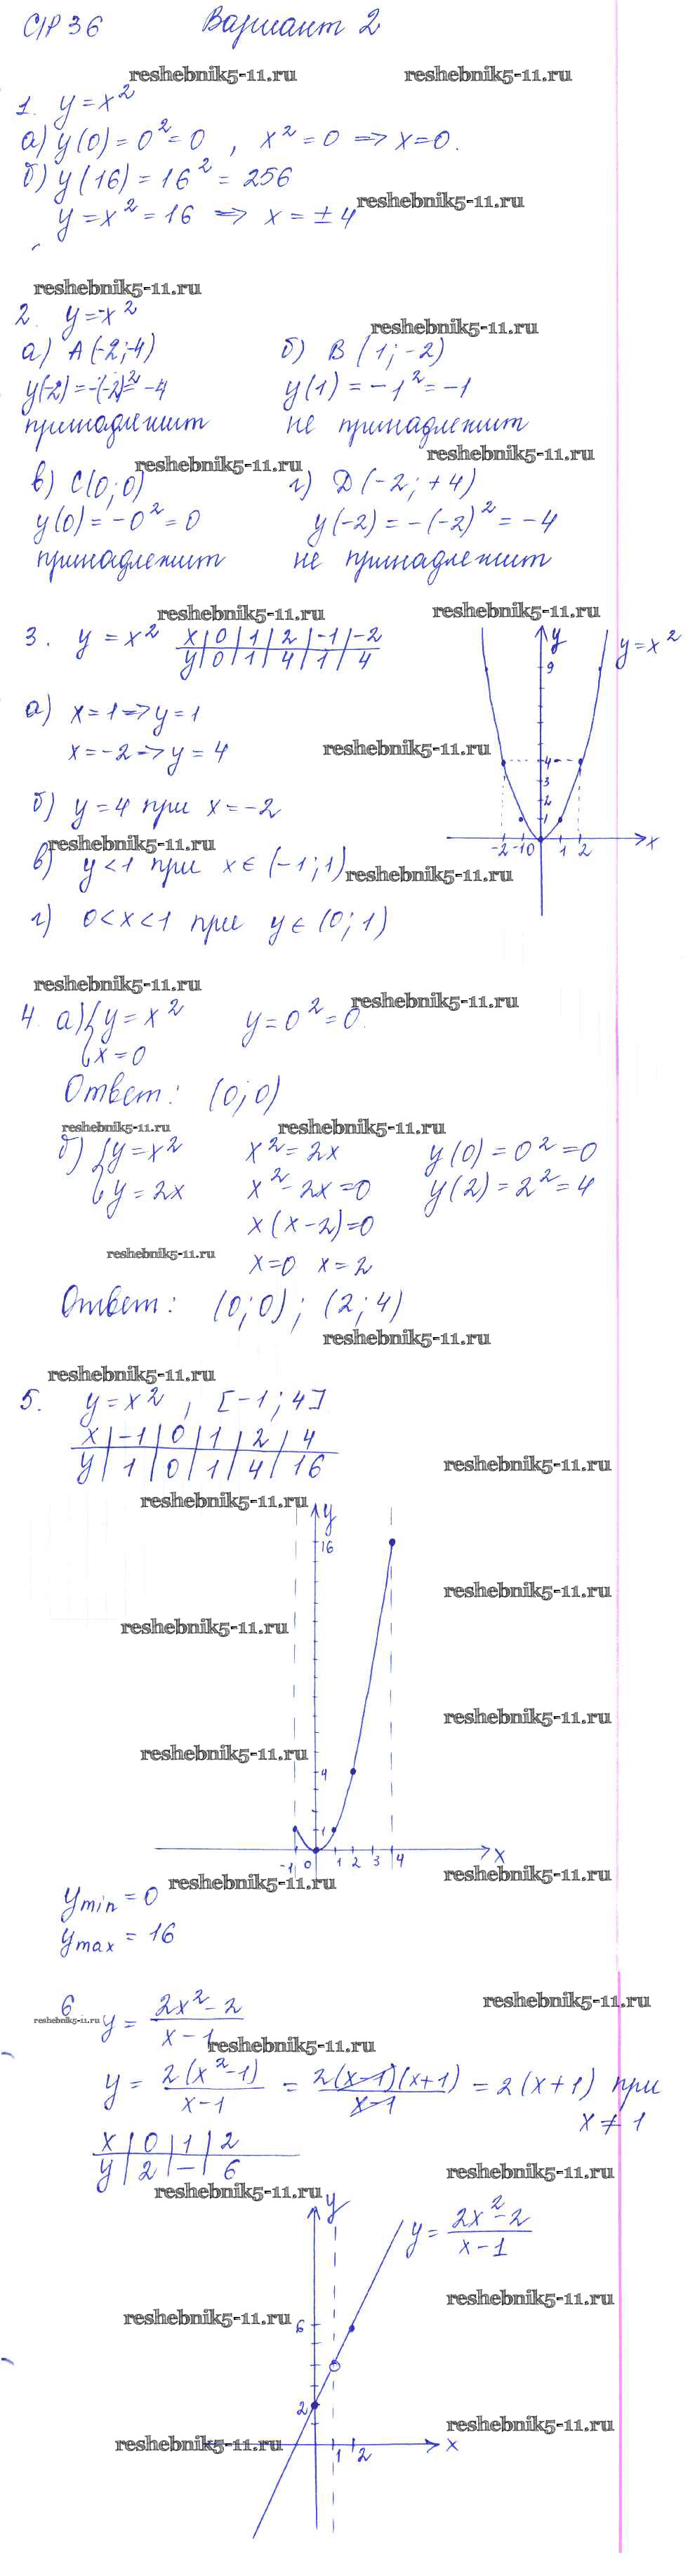 С/Р 36 Вариант 2
reshebnik5-11.ru reshebnik5-11.ru
1. y = x²
а) y(0) = 0² = 0 , x² = 0 => x = 0.
б) y(16) = 16² = 256
reshebnik5-11.ru
y = x² = 16 => x = ±4
reshebnik5-11.ru
2. y = -x²
reshebnik5-11.ru
а) A(-2;-4) б) B(1; -2)
y(-2) = -(-2)² = -4 y(1) = -1² = -1
принадлежит не принадлежит
reshebnik5-11.ru reshebnik5-11.ru
в) C(0; 0) г) D(-2; +4)
y(0) = -0² = 0 y(-2) = -(-2)² = -4
принадлежит не принадлежит
reshebnik5-11.ru reshebnik5-11.ru
3. y = x² x | 0 | 1 | 2 | -1 | -2
y | 0 | 1 | 4 | 1 | 4
y y = x²
9
4
3
2
1
-2 -1 0 1 2 x
а) x = 1 => y = 1
x = -2 => y = 4
reshebnik5-11.ru
б) y = 4 при x = -2
reshebnik5-11.ru
в) y < 1 при x ∈ (-1; 1)
reshebnik5-11.ru
г) 0 < x < 1 при y ∈ (0; 1)
reshebnik5-11.ru
reshebnik5-11.ru
4. а) { y = x² y = 0² = 0.
x = 0
Ответ: (0; 0)
reshebnik5-11.ru reshebnik5-11.ru
б) { y = x² x² = 2x y(0) = 0² = 0
y = 2x x² - 2x = 0 y(2) = 2² = 4
x(x - 2) = 0
reshebnik5-11.ru
x = 0 x = 2
Ответ: (0; 0) ; (2; 4)
reshebnik5-11.ru
reshebnik5-11.ru
5. y = x² , [-1; 4]
x | -1 | 0 | 1 | 2 | 4
y | 1 | 0 | 1 | 4 | 16
reshebnik5-11.ru
reshebnik5-11.ru
y
16
reshebnik5-11.ru
reshebnik5-11.ru
reshebnik5-11.ru
reshebnik5-11.ru
4
1
-1 0 1 2 3 4 x
reshebnik5-11.ru reshebnik5-11.ru
y min = 0
y max = 16
reshebnik5-11.ru
6 y = (2x² - 2)/(x - 1)
reshebnik5-11.ru
reshebnik5-11.ru
y = 2(x² - 1)/(x - 1) = 2(x - 1)(x + 1)/(x - 1) = 2(x + 1) при
x ≠ 1
x | 0 | 1 | 2
y | 2 | — | 6
reshebnik5-11.ru
reshebnik5-11.ru
y y = (2x² - 2)/(x - 1)
reshebnik5-11.ru
reshebnik5-11.ru
6
2
reshebnik5-11.ru
reshebnik5-11.ru
1 2 x